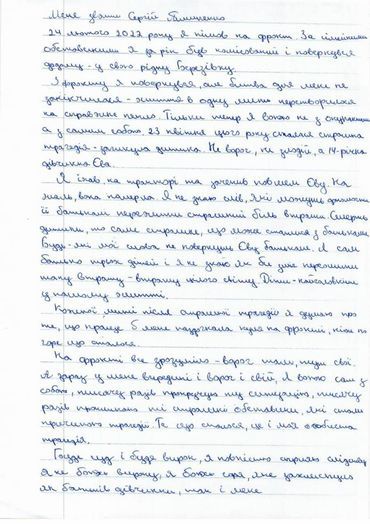 Мене звати Сергій
24 лютого 2022 року я пішов на фронт. За сімейними
обставинами я за рік був комісований і повернувся
додому - у свою рідну Березівку.
З фронту я повернувся, але битва для мене не
закінчилася - життя в одну мить перетворилося
на справжнє пекло. Тільки тепер я воюю не з окупантами
а з самим собою. 23 квітня цього року сталася страшна
трагедія - загинула дитина. Не ворог, не злодій, а 14-річна
дівчинка Єва.
Я їхав на тракторі та зачепив возом Єву. На
жаль, вона померла. Я не знаю слів, які можуть допомогти
її батькам пережити страшний біль втрати. Смерть
дитини, то саме страшне, що може статися з батьками.
Будь-які мої слова не повернуть Єву батькам. Я сам
батько трьох дітей і я не знаю як би зміг пережити
таку втрату - втрату цілого світу. Діти - найголовніше
у нашому житті.
Кожної миті після страшної трагедії я думаю про
те, що краще б мене наздогнала куля на фронті, ніж те
горе що сталося.
На фронті все зрозуміло - ворог там, тут свої.
А зараз у мене всередині і ворог і свій, я воюю сам з
собою, тисячу разів прокручую цю ситуацію, тисячу
разів проклинаю ті страшні обставини, які стали
причиною трагедії. Те що сталося, це і моя особиста
трагедія.
Буде суд і буде вирок, я повністю сприяю слідству
Я не боюсь вироку, я боюсь горя, яке захлестнуло
як батьків дівчинки, так і мене